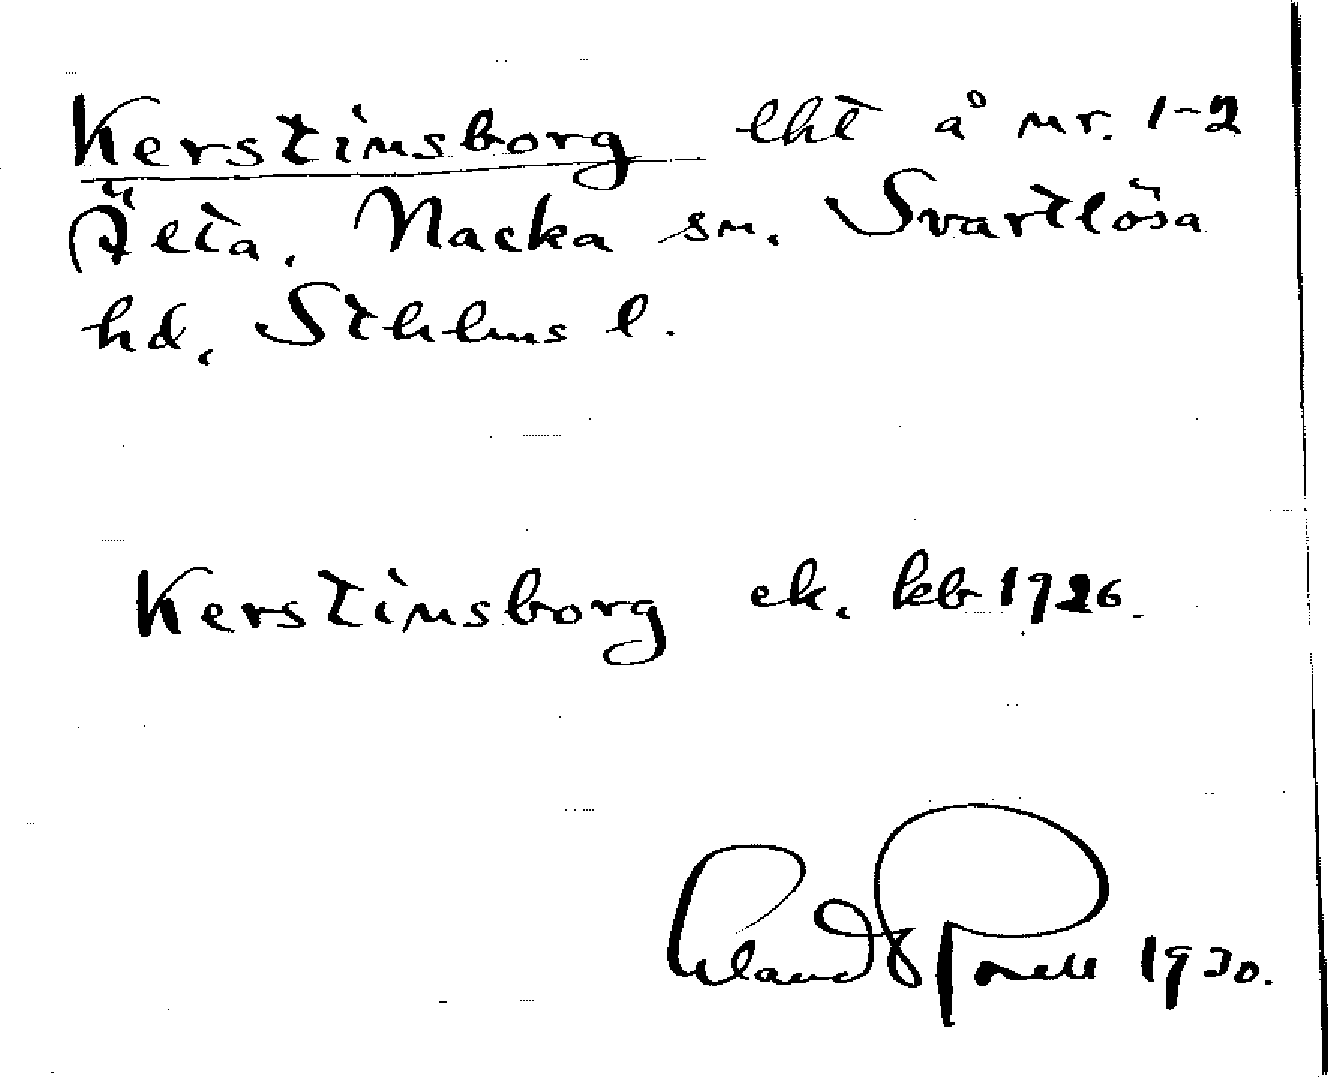 Kerstinsborg lht å nr. 1-2
Älta, Nacka sn. Svartlösa
hd, Sthlms l.
Kerstinsborg ek. kb 1926.
Erland Rosell 1930.